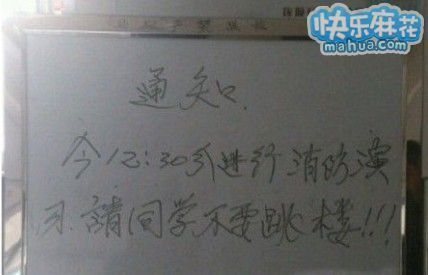 快乐麻花
mahua.com
通知
今12:30分进行消防演
习.請同学不要跳楼!!!